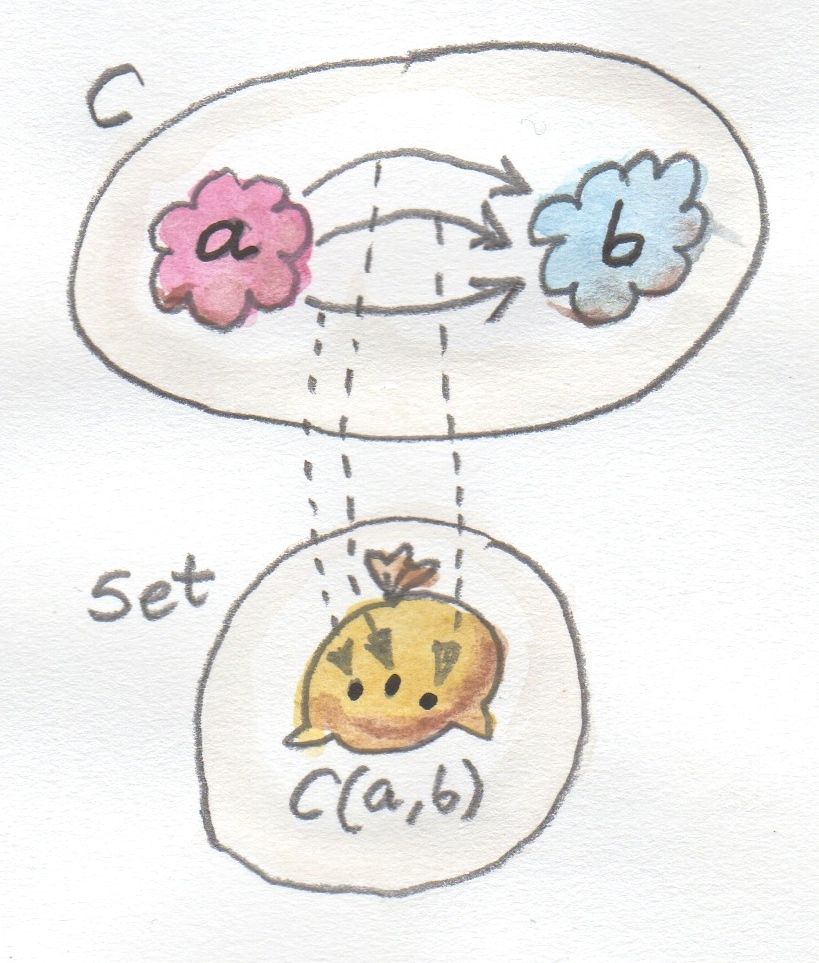 C
a
b
Set
C(a,b)